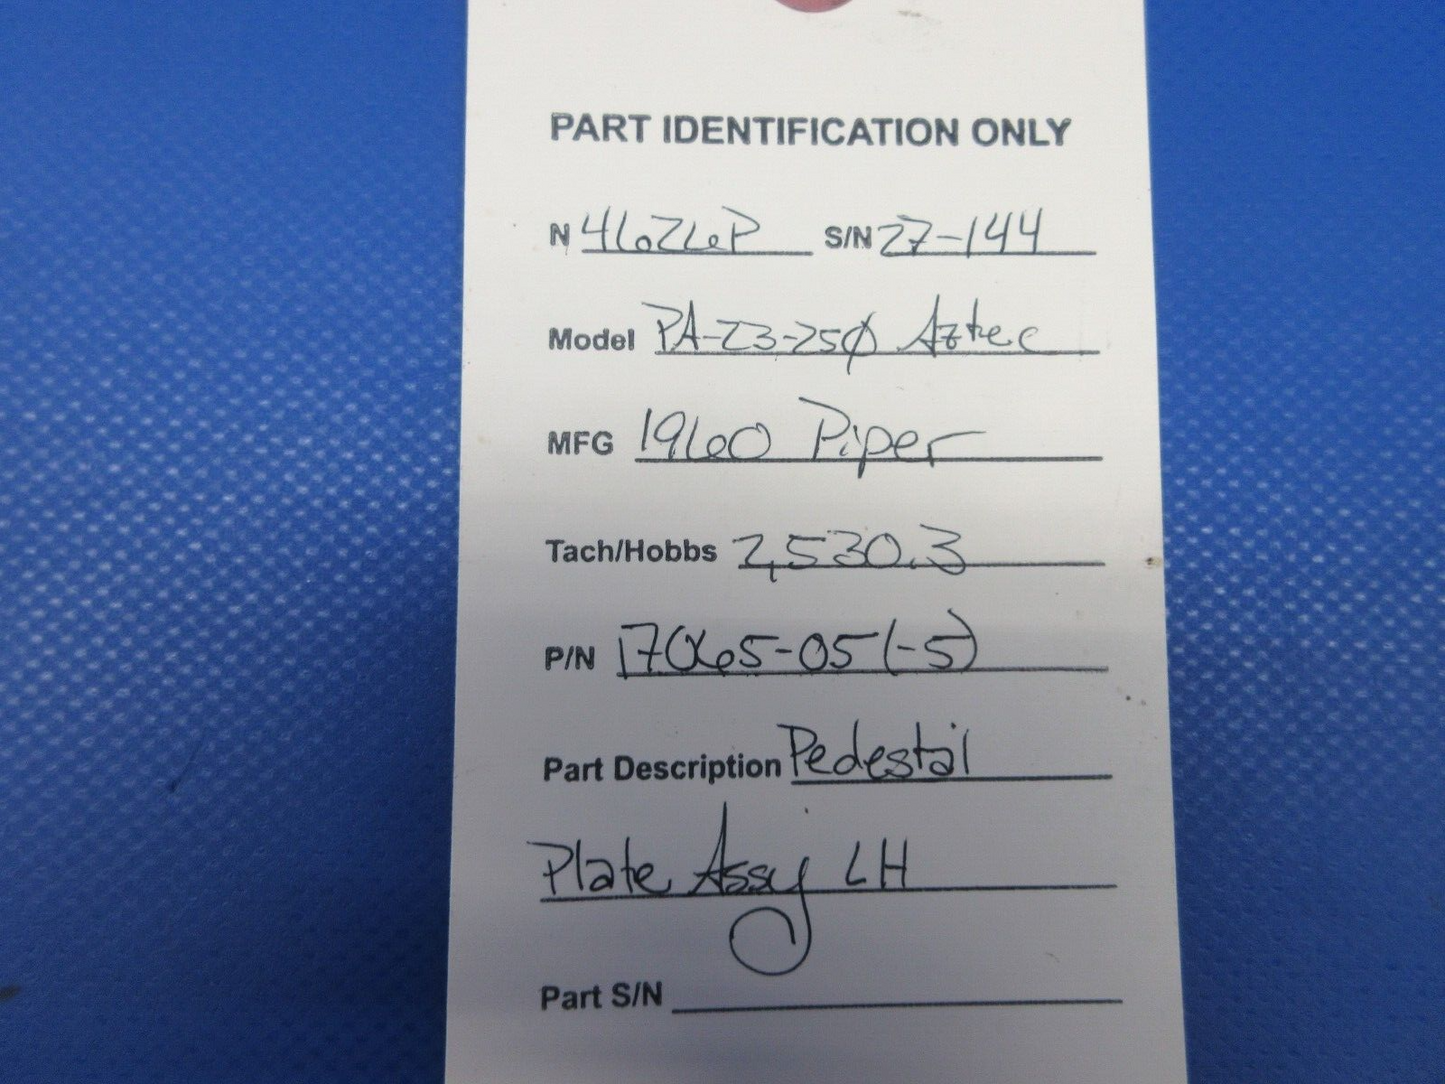 PART IDENTIFICATION ONLY
N 4626P S/N 27-144
Model PA-23-250 Aztec
MFG 1960 Piper
Tach/Hobbs 2,530.3
P/N 17065-05 (-5)
Part Description Pedestal
Plate Assy LH
Part S/N